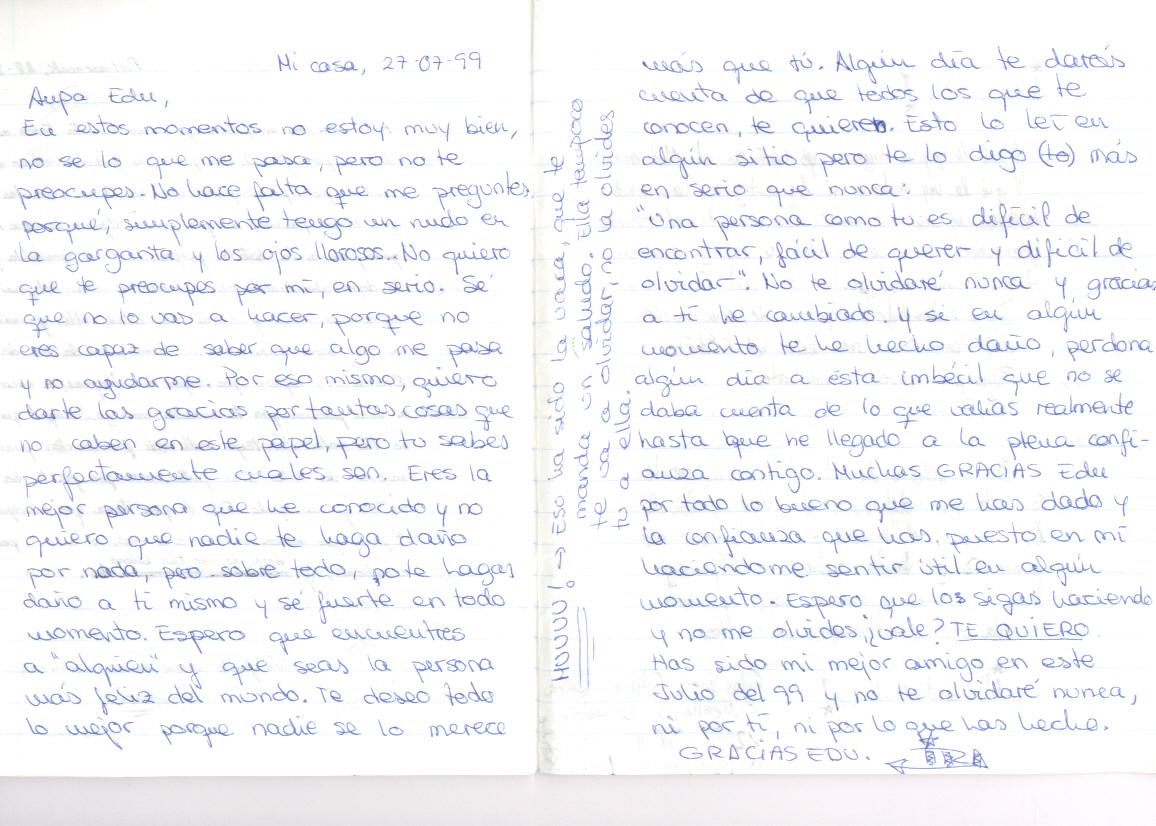 Mi casa, 27-07-99
Aupa Edu,
En estos momentos no estoy muy bien,
no se lo que me pasa, pero no te
preocupes. No hace falta que me preguntes
porqué, simplemente tengo un nudo en
la garganta y los ojos llorosos. No quiero
que te preocupes por mi, en serio. Sé
que no lo vas a hacer, porque no
eres capaz de saber que algo me pasa
y no ayudarme. Por eso mismo, quiero
darte las gracias por tantas cosas que
no caben en este papel, pero tu sabes
perfectamente cuales son. Eres la
mejor persona que he conocido y no
quiero que nadie te haga daño
por nada, pero sobre todo, no te hagas
daño a ti mismo y sé fuerte en todo
momento. Espero que encuentres
a "alguien" y que seas la persona
más feliz del mundo. Te deseo todo
lo mejor porque nadie se lo merece
MUUUU!. → Eso ha sido la vaca, que te
manda un saludo. Ella tampoco
te va a olvidar, no la olvides
tu a ella.
más que tú. Algún día te darás
cuenta de que todos los que te
conocen, te quieren. Esto lo leí en
algún sitio pero te lo digo (to) más
en serio que nunca:
"Una persona como tu es difícil de
encontrar, fácil de querer y dificil de
olvidar". No te olvidaré nunca y gracias
a tí he cambiado. y si en algún
momento te he hecho daño, perdona
algún dia a esta imbécil que no se
daba cuenta de lo que valias realmente
hasta que he llegado a la plena confi-
anza contigo. Muchas GRACIAS Edu
por todo lo bueno que me has dado y
la confianza que has puesto en mí
haciendome sentir útil en algún
momento. Espero que los sigas haciendo
y no me olvides, ¿vale? TE QUIERO
Has sido mi mejor amigo en este
Julio del 99 y no te olvidaré nunca,
ni por tí, ni por lo que has hecho.
GRACIAS EDU.